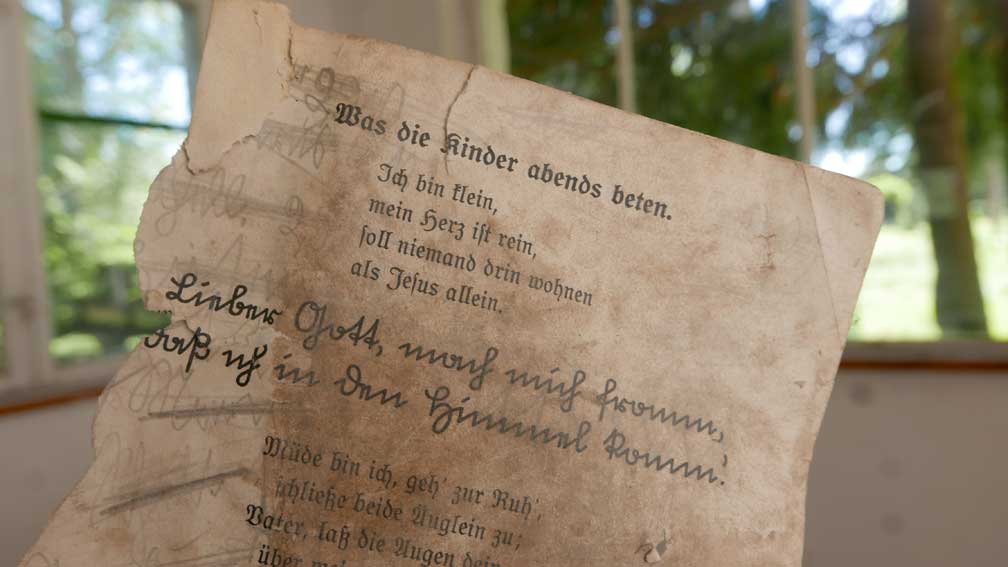 Was die Kinder abends beten.
Ich bin klein,
mein Herz ist rein,
soll niemand drin wohnen
als Jesus allein.
Lieber Gott, mach mich fromm,
daß ich in den Himmel komm'.
Müde bin ich, geh' zur Ruh',
schließe beide Äuglein zu;
Vater, laß die Augen dein
über mei